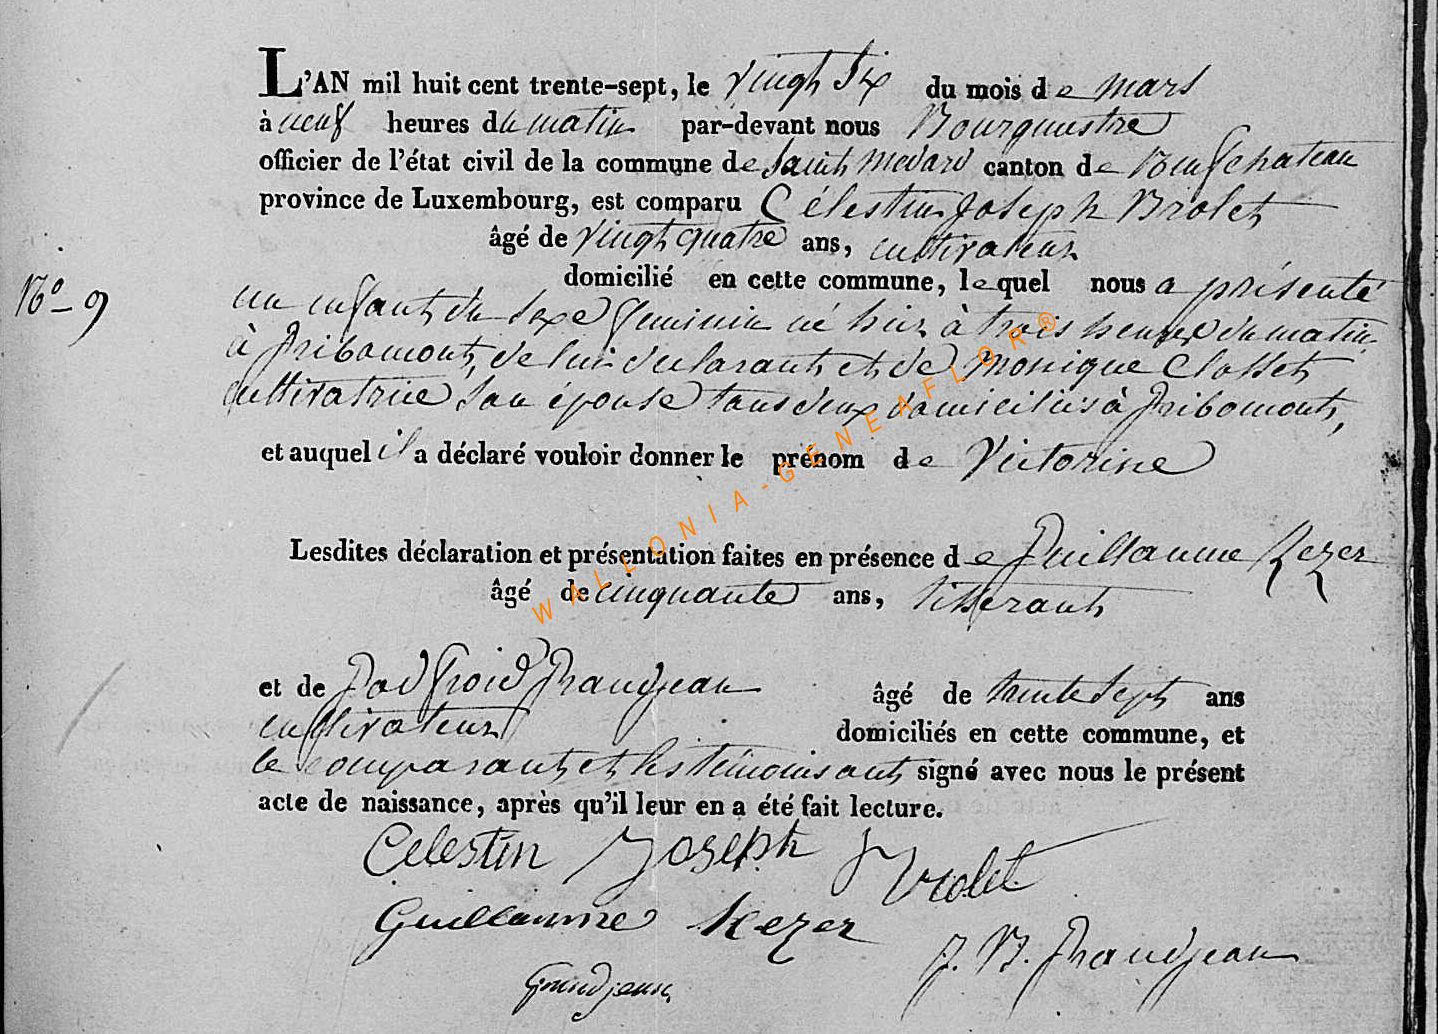 L'AN mil huit cent trente-sept, le vingt six du mois de mars
à neuf heures du matin par-devant nous Bourgmestre
officier de l'état civil de la commune de Saint Medard canton de Neufchateau
province de Luxembourg, est comparu Célestin Joseph Brolet
âgé de vingt quatre ans, cultivateur
domicilié en cette commune, lequel nous a présenté
No 9
un enfant du sexe feminin né hier à trois heures du matin
à Gribomont, de lui declarant et de Monique Closset
cultivatrice son épouse tous deux domiciliés à Gribomont,
et auquel il a déclaré vouloir donner le prénom de Victorine
Lesdites déclaration et présentation faites en présence de Guillaume Kezer
âgé de cinquante ans, tisserant
et de Godfroid Grandjean âgé de trente sept ans
cultivateur domiciliés en cette commune, et
le comparant et les témoins ont signé avec nous le présent
acte de naissance, après qu'il leur en a été fait lecture.
Celestin Joseph Brolet
Guillaume Kezer
J. B. Grandjean
Grandjean
WALLONIA-GENEAFLOR®